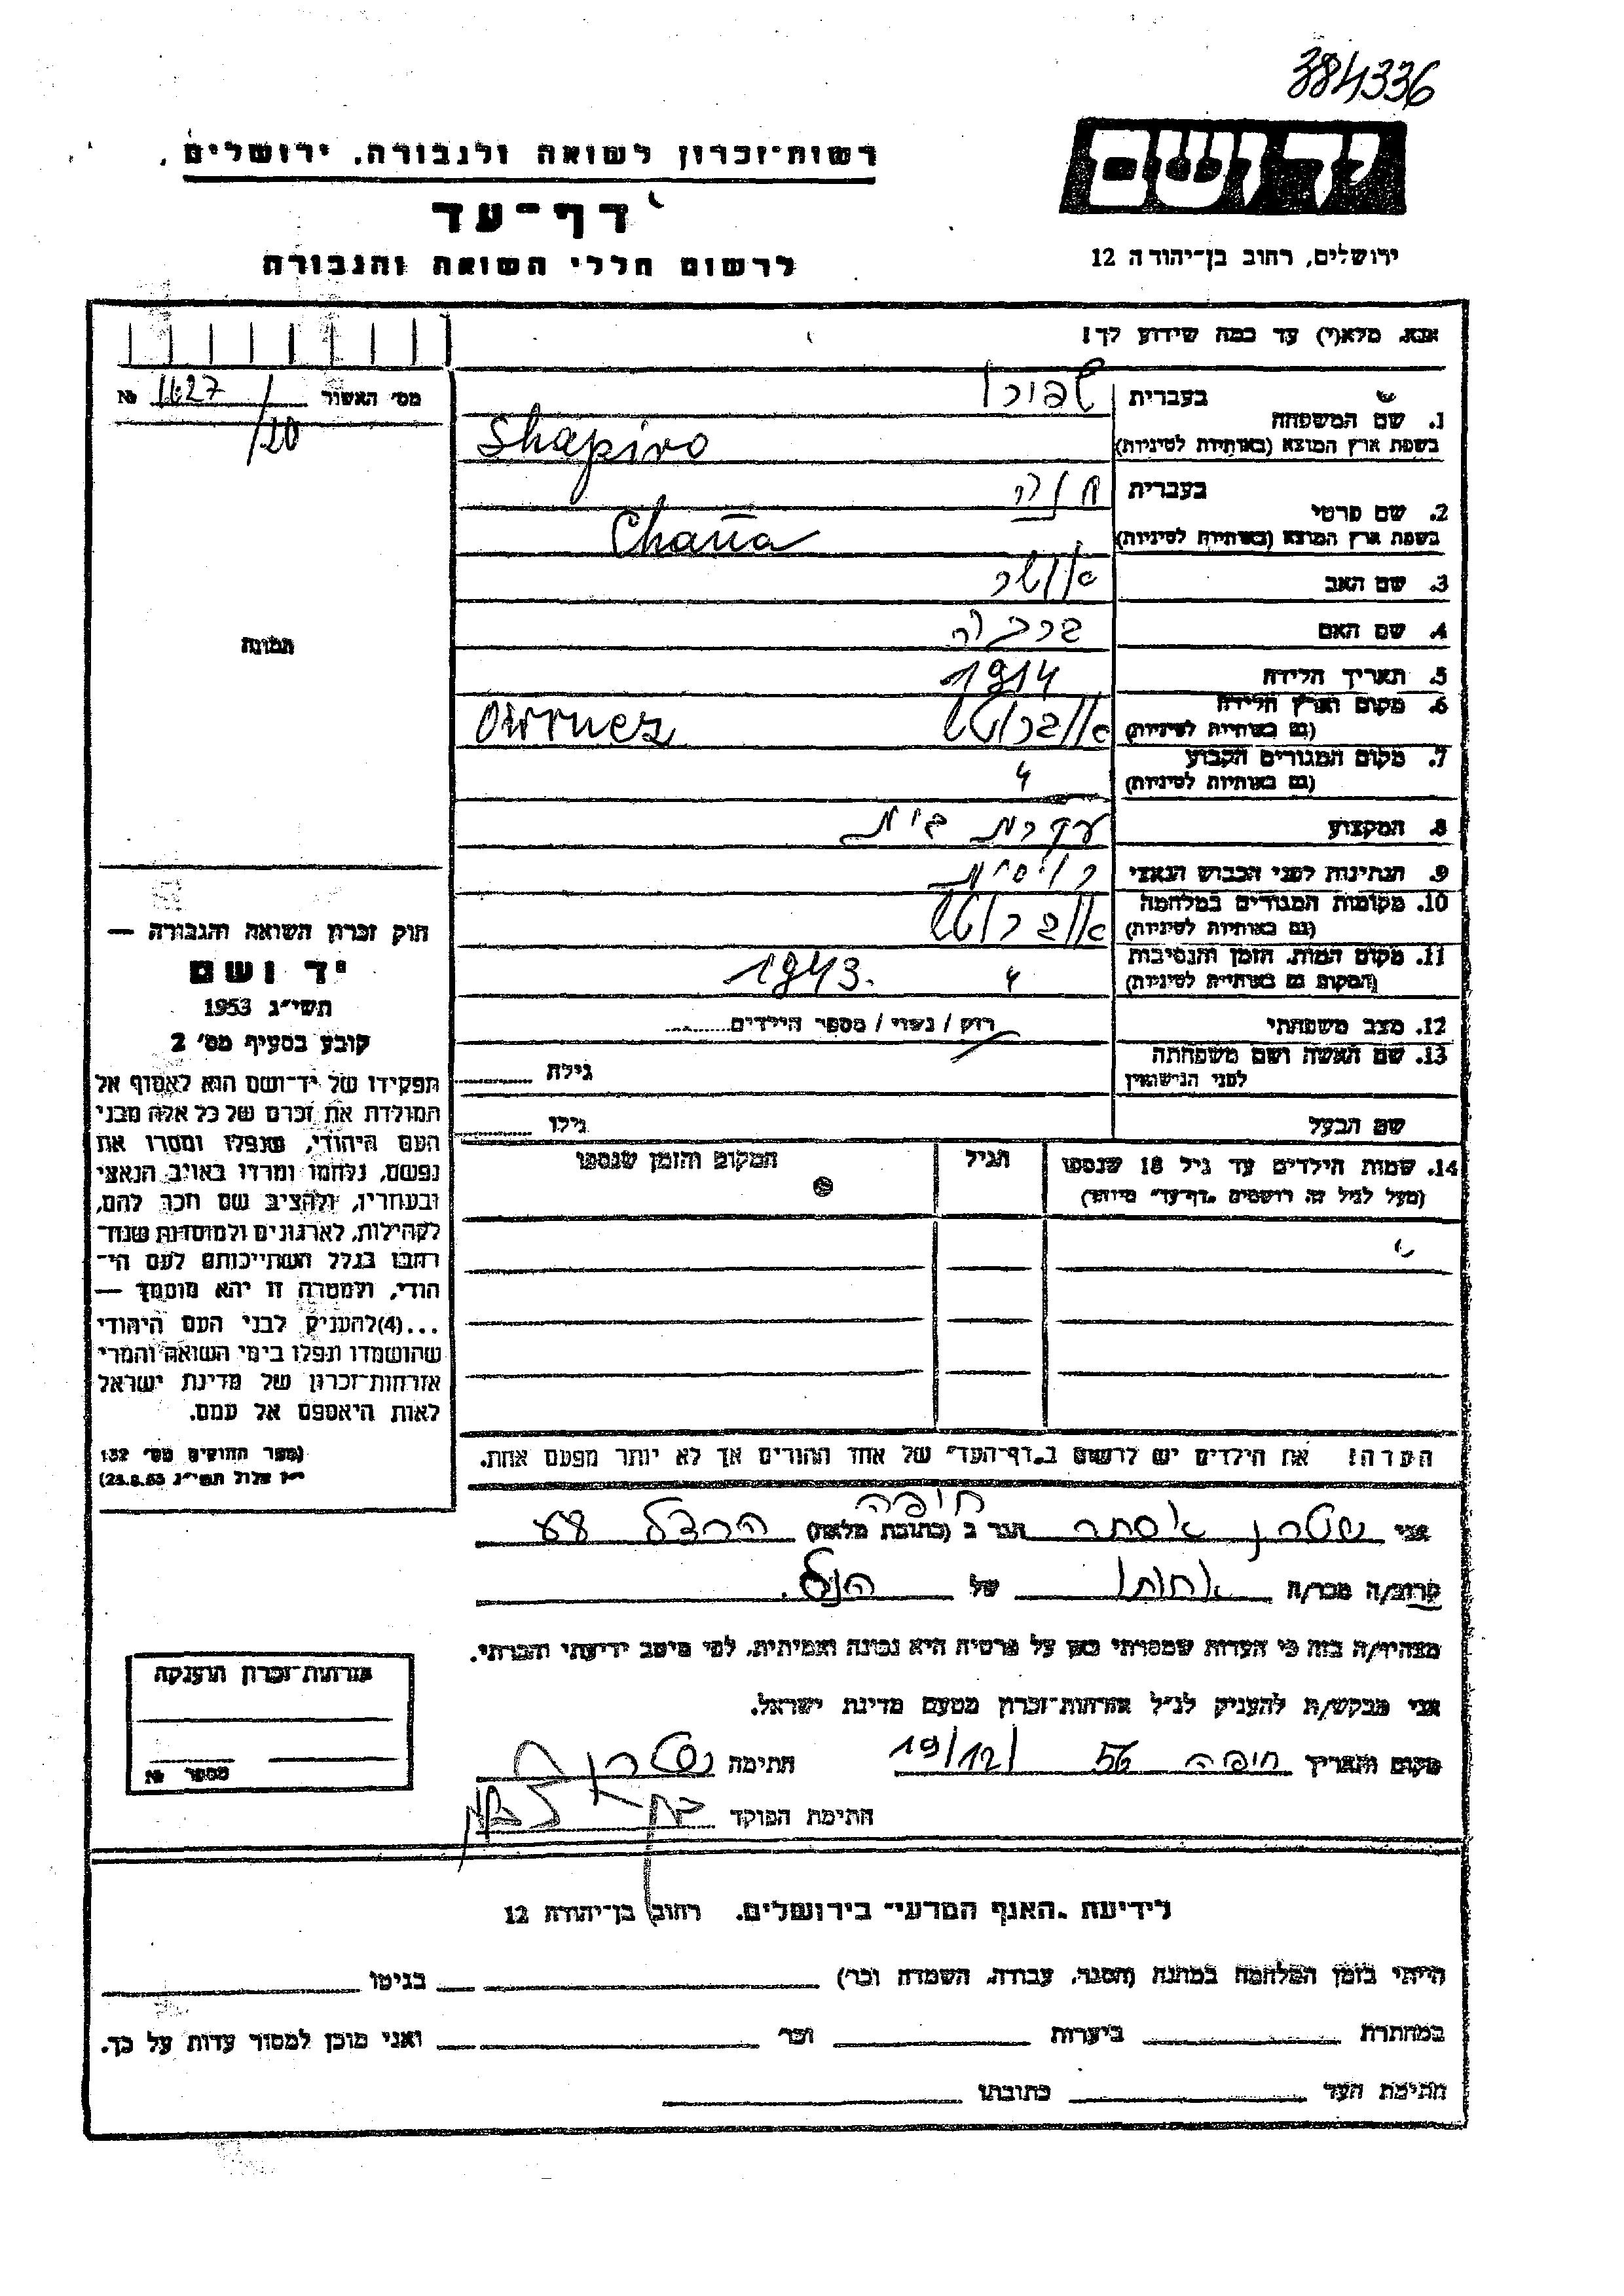 384336
יד ושם
ירושלים, רחוב בן־יהודה 12
רשות־זכרון לשואה ולגבורה, ירושלים
דף־עד
לרשום חללי השואה והגבורה
אנא, מלא(י) עד כמה שידוע לך!
מס׳ האשור 1127/20 №
1. שם המשפחה
בעברית שפירו
בשפת ארץ המוצא (באותיות לטיניות) Shapiro
2. שם פרטי
בעברית חנה
בשפת ארץ המוצא (באותיות לטיניות) Chana
3. שם האב
4. שם האם
5. תאריך הלידה 1914
6. מקום וארץ הלידה
(גם באותיות לטיניות)
7. מקום המגורים הקבוע
(גם באותיות לטיניות) 4
8. המקצוע עקרת בית
9. הנתינות לפני הכבוש הנאצי
10. מקומות המגורים במלחמה
(גם באותיות לטיניות)
11. מקום המות, הזמן והנסיבות
(המקום גם באותיות לטיניות) 4 1943.
12. מצב משפחתי רוק / נשוי / מספר הילדים
13. שם האשה ושם משפחתה
לפני הנישואין גילה
שם הבעל גילו
14. שמות הילדים עד גיל 18 שנספו
(מעל לגיל זה רושמים „דף־עד״ מיוחד)
הגיל
המקום והזמן שנספו
הערה! את הילדים יש לרשום ב„דף־העד״ של אחד ההורים אך לא יותר מפעם אחת.
תמונה
חוק זכרון השואה והגבורה —
יד ושם
תשי״ג 1953
קובע בסעיף מס׳ 2
תפקידו של יד־ושם הוא לאסוף אל
המולדת את זכרם של כל אלה מבני
העם היהודי, שנפלו ומסרו את
נפשם, נלחמו ומרדו באויב הנאצי
ובעוזריו, ולהציב שם וזכר להם,
לקהילות, לארגונים ולמוסדות שנח־
רבו בגלל השתייכותם לעם הי־
הודי, ולמטרה זו יהא מוסמך —
...(4)להעניק לבני העם היהודי
שהושמדו ונפלו בימי השואה והמרי
אזרחות־זכרון של מדינת ישראל
לאות היאספם אל עמם.
(ספר החוקים מס׳ 132
י״ז אלול תשי״ג 28.8.53)
חיפה
אני שטרן אסתר הגר ב (כתובת מלאה) הרצל
קרוב/ה מכר/ה אחותו של הנ״ל.
מצהיר/ה בזה כי העדות שמסרתי כאן על פרטיה היא נכונה ואמיתית, לפי מיטב ידיעתי והכרתי.
אני מבקש/ת להעניק לנ״ל אזרחות־זכרון מטעם מדינת ישראל.
מקום ותאריך חיפה 56 19/12/ חתימה
חתימת הפוקד
אזרחות־זכרון הוענקה
מספר №
לידיעת „האגף המדעי״ בירושלים. רחוב בן־יהודה 12
הייתי בזמן המלחמה במחנה (הסגר, עבודה, השמדה וכו׳) בגיטו
במחתרת ביערות וכו׳ ואני מוכן למסור עדות על כך.
חתימת העד כתובתו